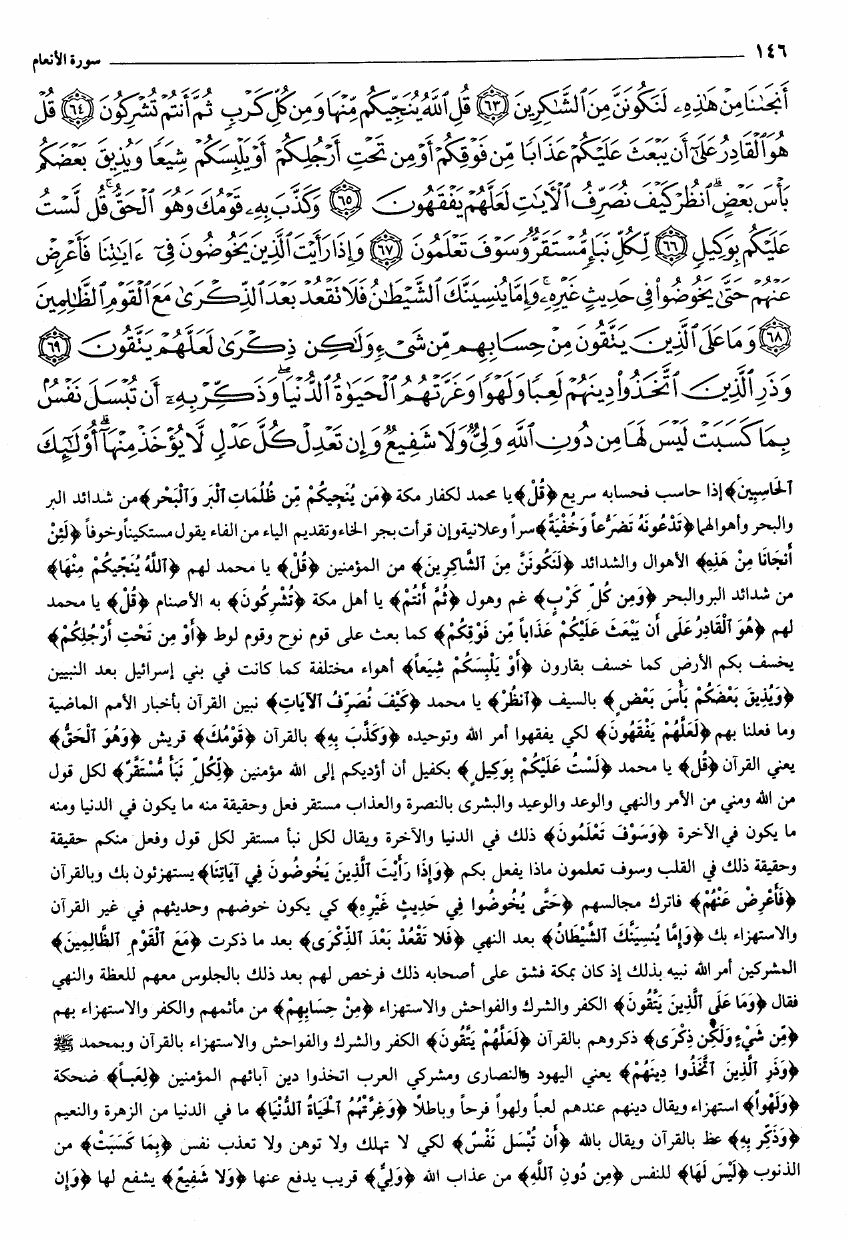 ١٤٦ سورة الأنعام
أَنجَىٰنَا مِنْ هَٰذِهِۦ لَنَكُونَنَّ مِنَ ٱلشَّٰكِرِينَ ٦٣ قُلِ ٱللَّهُ يُنَجِّيكُم مِّنْهَا وَمِن كُلِّ كَرْبٍ ثُمَّ أَنتُمْ تُشْرِكُونَ ٦٤ قُلْ
هُوَ ٱلْقَادِرُ عَلَىٰٓ أَن يَبْعَثَ عَلَيْكُمْ عَذَابًا مِّن فَوْقِكُمْ أَوْ مِن تَحْتِ أَرْجُلِكُمْ أَوْ يَلْبِسَكُمْ شِيَعًا وَيُذِيقَ بَعْضَكُم
بَأْسَ بَعْضٍ ۗ ٱنظُرْ كَيْفَ نُصَرِّفُ ٱلْءَايَٰتِ لَعَلَّهُمْ يَفْقَهُونَ ٦٥ وَكَذَّبَ بِهِۦ قَوْمُكَ وَهُوَ ٱلْحَقُّ ۚ قُل لَّسْتُ
عَلَيْكُم بِوَكِيلٍ ٦٦ لِّكُلِّ نَبَإٍ مُّسْتَقَرٌّ وَسَوْفَ تَعْلَمُونَ ٦٧ وَإِذَا رَأَيْتَ ٱلَّذِينَ يَخُوضُونَ فِىٓ ءَايَٰتِنَا فَأَعْرِضْ
عَنْهُمْ حَتَّىٰ يَخُوضُوا۟ فِى حَدِيثٍ غَيْرِهِۦ ۚ وَإِمَّا يُنسِيَنَّكَ ٱلشَّيْطَٰنُ فَلَا تَقْعُدْ بَعْدَ ٱلذِّكْرَىٰ مَعَ ٱلْقَوْمِ ٱلظَّٰلِمِينَ
٦٨ وَمَا عَلَى ٱلَّذِينَ يَتَّقُونَ مِنْ حِسَابِهِم مِّن شَىْءٍ وَلَٰكِن ذِكْرَىٰ لَعَلَّهُمْ يَتَّقُونَ ٦٩
وَذَرِ ٱلَّذِينَ ٱتَّخَذُوا۟ دِينَهُمْ لَعِبًا وَلَهْوًا وَغَرَّتْهُمُ ٱلْحَيَوٰةُ ٱلدُّنْيَا ۚ وَذَكِّرْ بِهِۦٓ أَن تُبْسَلَ نَفْسٌۢ
بِمَا كَسَبَتْ لَيْسَ لَهَا مِن دُونِ ٱللَّهِ وَلِىٌّ وَلَا شَفِيعٌ وَإِن تَعْدِلْ كُلَّ عَدْلٍ لَّا يُؤْخَذْ مِنْهَآ ۗ أُو۟لَٰٓئِكَ
ٱلْحَاسِبِينَ﴾ إذا حاسب فحسابه سريع ﴿قُلْ﴾ يا محمد لكفار مكة ﴿مَن يُنَجِيكُمْ مِّن ظُلُمَاتِ ٱلْبَرِ وَٱلْبَحْرِ﴾ من شدائد البر
والبحر وأهوالهما ﴿تَدْعُونَهُ تَضَرُّعاً وَخُفْيَةً﴾ سراً وعلانية وإن قرأت بجر الخاء وتقديم الياء من الفاء يقول مستكيناً وخوفاً ﴿لَئِنْ
أَنجَانَا مِنْ هَذِهِ﴾ الأهوال والشدائد ﴿لَنَكُونَنَّ مِنَ ٱلشَّاكِرِينَ﴾ من المؤمنين ﴿قُلْ﴾ يا محمد لهم ﴿ٱللَّهُ يُنَجِّيكُمْ مِنْهَا﴾
من شدائد البر والبحر ﴿وَمِن كُلِّ كَرْبٍ﴾ غم وهول ﴿ثُمَّ أَنتُمْ﴾ يا أهل مكة ﴿تُشْرِكُونَ﴾ به الأصنام ﴿قُلْ﴾ يا محمد
لهم ﴿هُوَ ٱلْقَادِرُ عَلَى أَن يَبْعَثَ عَلَيْكُمْ عَذَاباً مِّن فَوْقِكُمْ﴾ كما بعث على قوم نوح وقوم لوط ﴿أَوْ مِن تَحْتِ أَرْجُلِكُمْ﴾
يخسف بكم الأرض كما خسف بقارون ﴿أَوْ يَلْبِسَكُمْ شِيَعاً﴾ أهواء مختلفة كما كانت في بني إسرائيل بعد النبيين
﴿وَيُذِيقَ بَعْضَكُمْ بَأْسَ بَعْضٍ﴾ بالسيف ﴿ٱنظُرْ﴾ يا محمد ﴿كَيْفَ نُصَرِّفُ ٱلآيَاتِ﴾ نبين القرآن بأخبار الأمم الماضية
وما فعلنا بهم ﴿لَعَلَّهُمْ يَفْقَهُونَ﴾ لكي يفقهوا أمر الله وتوحيده ﴿وَكَذَّبَ بِهِ﴾ بالقرآن ﴿قَوْمُكَ﴾ قريش ﴿وَهُوَ ٱلْحَقُّ﴾
يعني القرآن ﴿قُل﴾ يا محمد ﴿لَسْتُ عَلَيْكُمْ بِوَكِيلٍ﴾ بكفيل أن أؤديكم إلى الله مؤمنين ﴿لِّكُلِّ نَبَأٍ مُّسْتَقَرٌّ﴾ لكل قول
من الله ومني من الأمر والنهي والوعد والوعيد والبشرى بالنصرة والعذاب مستقر فعل وحقيقة منه ما يكون في الدنيا ومنه
ما يكون في الآخرة ﴿وَسَوْفَ تَعْلَمُونَ﴾ ذلك في الدنيا والآخرة ويقال لكل نبأ مستقر لكل قول وفعل منكم حقيقة
وحقيقة ذلك في القلب وسوف تعلمون ماذا يفعل بكم ﴿وَإِذَا رَأَيْتَ ٱلَّذِينَ يَخُوضُونَ فِي آيَاتِنَا﴾ يستهزئون بك وبالقرآن
﴿فَأَعْرِضْ عَنْهُمْ﴾ فاترك مجالسهم ﴿حَتَّى يُخُوضُوا فِي حَدِيثٍ غَيْرِهِ﴾ كي يكون خوضهم وحديثهم في غير القرآن
والاستهزاء بك ﴿وَإِمَّا يُنسِيَنَّكَ ٱلشَّيْطَانُ﴾ بعد النهي ﴿فَلا تَقْعُدْ بَعْدَ ٱلذِّكْرَى﴾ بعد ما ذكرت ﴿مَعَ ٱلْقَوْمِ ٱلظَّالِمِينَ﴾
المشركين أمر الله نبيه بذلك إذ كان بمكة فشق على أصحابه ذلك فرخص لهم بعد ذلك بالجلوس معهم للعظة والنهي
فقال ﴿وَمَا عَلَى ٱلَّذِينَ يَتَّقُونَ﴾ الكفر والشرك والفواحش والاستهزاء ﴿مِنْ حِسَابِهِمْ﴾ من مأثمهم والكفر والاستهزاء بهم
﴿مِّن شَيْءٍ وَلَكِن ذِكْرَى﴾ ذكروهم بالقرآن ﴿لَعَلَّهُمْ يَتَّقُونَ﴾ الكفر والشرك والفواحش والاستهزاء بالقرآن وبمحمد ﷺ
﴿وَذَرِ ٱلَّذِينَ ٱتَّخَذُوا دِينَهُمْ﴾ يعني اليهود والنصارى ومشركي العرب اتخذوا دين آبائهم المؤمنين ﴿لَعِبـاً﴾ ضحكة
﴿وَلَهْواً﴾ استهزاء ويقال دينهم عندهم لعباً ولهواً فرحاً وباطلاً ﴿وَغَرَّتْهُمُ ٱلْحَيَاةُ ٱلدُّنْيَا﴾ ما في الدنيا من الزهرة والنعيم
﴿وَذَكِّرْ بِهِ﴾ عظ بالقرآن ويقال بالله ﴿أَن تُبْسَلَ نَفْسٌ﴾ لكي لا تهلك ولا توهن ولا تعذب نفس ﴿بِمَا كَسَبَتْ﴾ من
الذنوب ﴿لَيْسَ لَهَا﴾ للنفس ﴿مِن دُونِ ٱللَّهِ﴾ من عذاب الله ﴿وَلِيٌّ﴾ قريب يدفع عنها ﴿وَلا شَفِيعٌ﴾ يشفع لها ﴿وَإِن